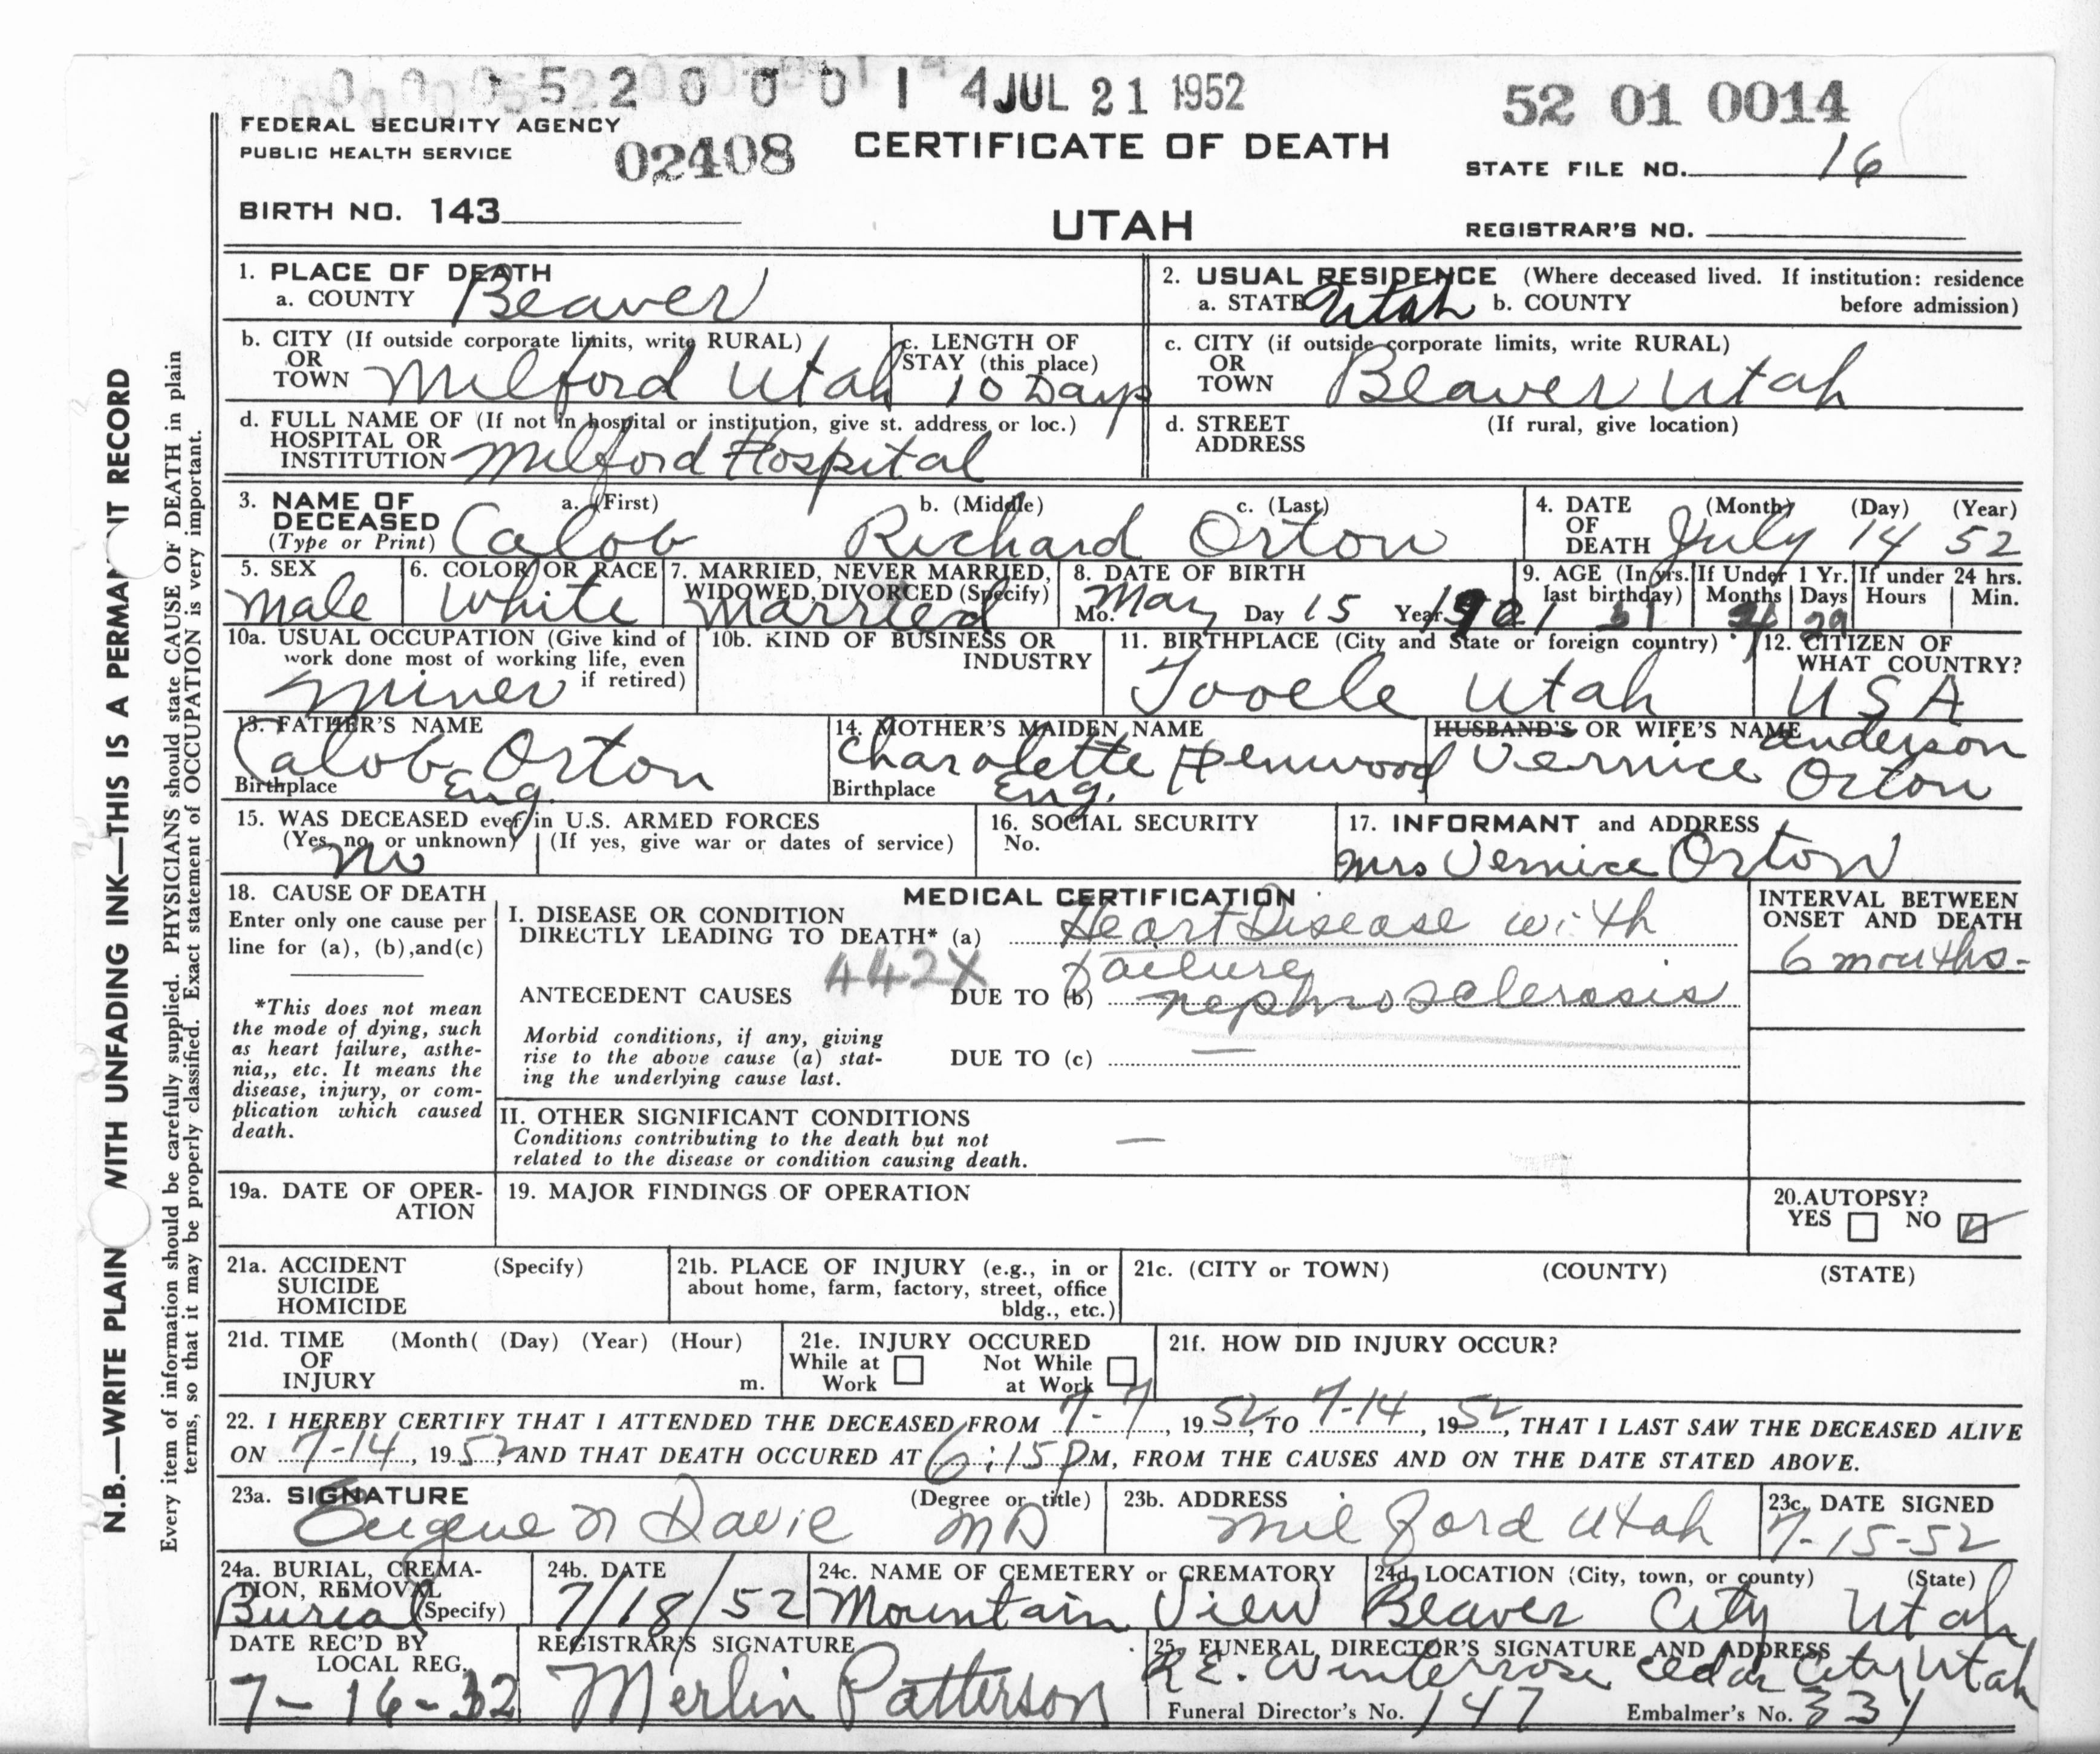 0 0 0 5 2 0 0 0 1 4 JUL 21 1952
52 01 0014
FEDERAL SECURITY AGENCY
PUBLIC HEALTH SERVICE
02408
CERTIFICATE OF DEATH
STATE FILE NO. 16
BIRTH NO. 143
UTAH
REGISTRAR'S NO.
N.B.—WRITE PLAIN WITH UNFADING INK—THIS IS A PERMAN T RECORD
Every item of information should be carefully supplied. PHYSICIANS should state CAUSE OF DEATH in plain
terms, so that it may be properly classified. Exact statement of OCCUPATION is very important.
1. PLACE OF DEATH
a. COUNTY Beaver
2. USUAL RESIDENCE (Where deceased lived. If institution: residence
a. STATE Utah b. COUNTY before admission)
b. CITY (If outside corporate limits, write RURAL)
OR
TOWN Milford Utah
c. LENGTH OF
STAY (this place)
10 Days
c. CITY (if outside corporate limits, write RURAL)
OR
TOWN Beaver Utah
d. FULL NAME OF (If not in hospital or institution, give st. address or loc.)
HOSPITAL OR
INSTITUTION Milford Hospital
d. STREET (If rural, give location)
ADDRESS
3. NAME OF DECEASED (Type or Print)
a. (First) b. (Middle) c. (Last)
Calob Richard Orton
4. DATE OF DEATH (Month) (Day) (Year)
July 14 52
5. SEX
Male
6. COLOR OR RACE
White
7. MARRIED, NEVER MARRIED,
WIDOWED, DIVORCED (Specify)
Married
8. DATE OF BIRTH
Mo. May Day 15 Year 1901
9. AGE (In yrs. last birthday) 51
If Under 1 Yr. Months Days 29
If under 24 hrs. Hours Min.
10a. USUAL OCCUPATION (Give kind of
work done most of working life, even
if retired)
Miner
10b. KIND OF BUSINESS OR
INDUSTRY
11. BIRTHPLACE (City and State or foreign country)
Tooele Utah
12. CITIZEN OF
WHAT COUNTRY?
USA
13. FATHER'S NAME
Calob Orton
Birthplace Eng.
14. MOTHER'S MAIDEN NAME
Charolette Henwood
Birthplace Eng.
HUSBAND'S OR WIFE'S NAME
Vernice Anderson
Orton
15. WAS DECEASED ever in U.S. ARMED FORCES
(Yes, no, or unknown) (If yes, give war or dates of service)
No
16. SOCIAL SECURITY
No.
17. INFORMANT and ADDRESS
Mrs Vernice Orton
18. CAUSE OF DEATH
Enter only one cause per
line for (a), (b),and(c)
*This does not mean
the mode of dying, such
as heart failure, asthe-
nia,, etc. It means the
disease, injury, or com-
plication which caused
death.
MEDICAL CERTIFICATION
I. DISEASE OR CONDITION
DIRECTLY LEADING TO DEATH* (a) Heart Disease with
failure
442X
ANTECEDENT CAUSES DUE TO (b) nephrosclerosis
Morbid conditions, if any, giving
rise to the above cause (a) stat-
ing the underlying cause last.
DUE TO (c) —
INTERVAL BETWEEN
ONSET AND DEATH
6 months-
II. OTHER SIGNIFICANT CONDITIONS
Conditions contributing to the death but not —
related to the disease or condition causing death.
19a. DATE OF OPER-
ATION
19. MAJOR FINDINGS OF OPERATION
20.AUTOPSY?
YES NO ✓
21a. ACCIDENT (Specify)
SUICIDE
HOMICIDE
21b. PLACE OF INJURY (e.g., in or
about home, farm, factory, street, office
bldg., etc.)
21c. (CITY or TOWN) (COUNTY) (STATE)
21d. TIME (Month( (Day) (Year) (Hour)
OF
INJURY m.
21e. INJURY OCCURED
While at Work Not While at Work
21f. HOW DID INJURY OCCUR?
22. I HEREBY CERTIFY THAT I ATTENDED THE DECEASED FROM 7-7, 1952, TO 7-14, 1952, THAT I LAST SAW THE DECEASED ALIVE
ON 7-14, 1952, AND THAT DEATH OCCURED AT 6:15PM, FROM THE CAUSES AND ON THE DATE STATED ABOVE.
23a. SIGNATURE (Degree or title)
Eugene N Davie MD
23b. ADDRESS
Milford Utah
23c. DATE SIGNED
7-15-52
24a. BURIAL, CREMA-
TION, REMOVAL
(Specify)
Burial
24b. DATE
7/18/52
24c. NAME OF CEMETERY or CREMATORY
Mountain View
24d. LOCATION (City, town, or county) (State)
Beaver City Utah
DATE REC'D BY
LOCAL REG.
7-16-52
REGISTRAR'S SIGNATURE
Merlin Patterson
25. FUNERAL DIRECTOR'S SIGNATURE AND ADDRESS
R.E. Winterrose Cedar City Utah
Funeral Director's No. 147 Embalmer's No. 331